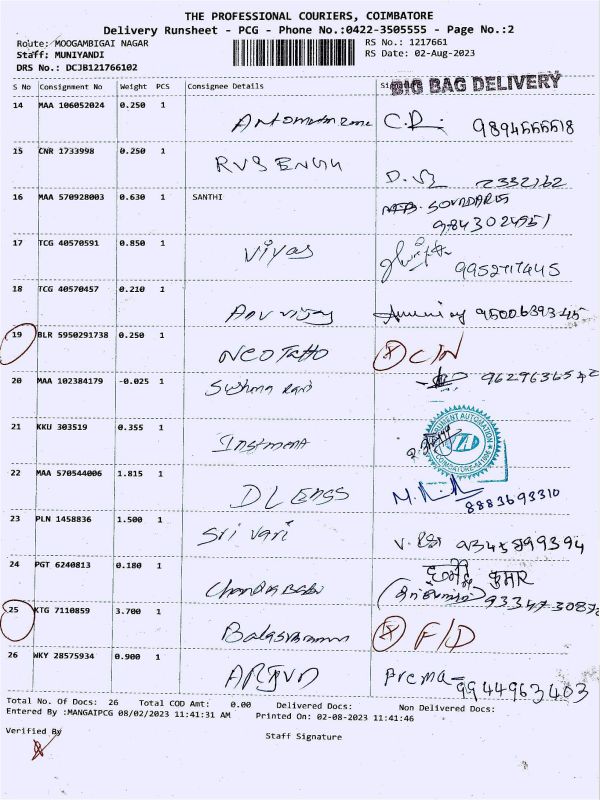 THE PROFESSIONAL COURIERS, COIMBATORE
Delivery Runsheet - PCG - Phone No.:0422-3505555 - Page No.:2
Route: MOOGAMBIGAI NAGAR RS No.: 1217661
Staff: MUNIYANDI RS Date: 02-Aug-2023
DRS No.: DCJB121766102
BIG BAG DELIVERY
S No Consignment No Weight PCS Consignee Details
14 MAA 106052024 0.250 1
C.D.
15 CNR 1733998 0.250 1
RVS
2332162
16 MAA 570928003 0.630 1 SANTHI
9843024951
17 TCG 40570591 0.850 1
Viyas
18 TCG 40570457 0.210 1
19 BLR 5950291738 0.250 1
Neo Tatto C/N
20 MAA 102384179 -0.025 1
Sushma Rani
21 KKU 303519 0.355 1
22 MAA 570544006 1.815 1
DL Engs
8883693310
23 PLN 1458836 1.500 1
Sri Vari
24 PGT 6240813 0.180 1
कुमार
Chandra Babu
25 KTG 7110859 3.700 1
F/D
26 WKY 28575934 0.900 1
ARJUN Prema
9944963403
Total No. Of Docs: 26 Total COD Amt: 0.00 Delivered Docs: Non Delivered Docs:
Entered By :MANGAIPCG 08/02/2023 11:41:31 AM Printed On: 02-08-2023 11:41:46
Verified By
Staff Signature